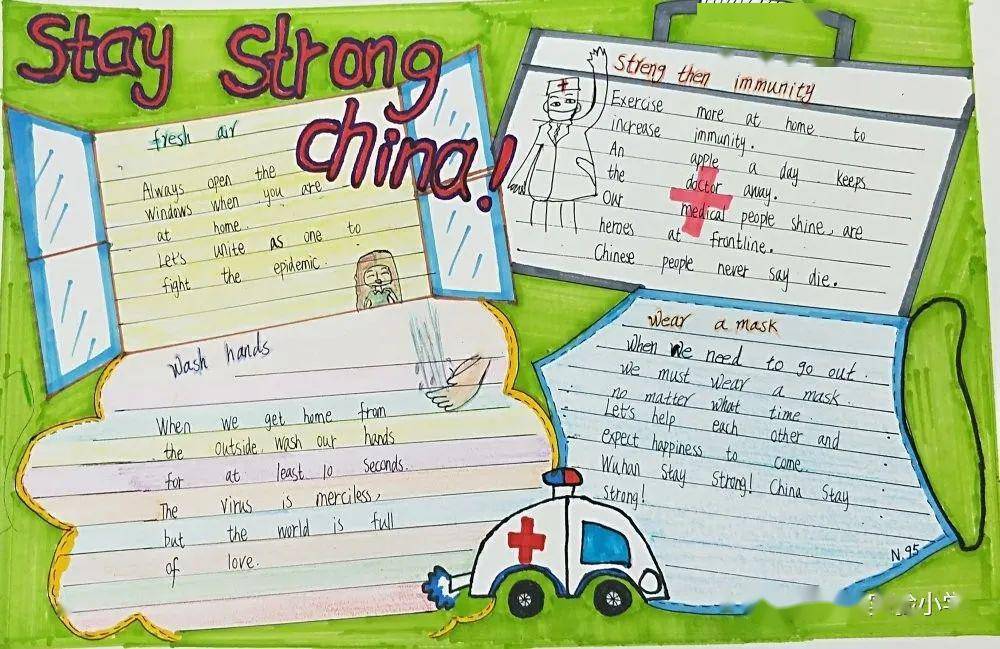 Stay Strong
China!
fresh air
Always open the
windows when you are
at home.
Let's unite as one to
fight the epidemic.
Streng then immunity
Exercise more at home to
increase immunity.
An apple a day keeps
the doctor away.
Our medical people shine, are
heroes at frontline.
Chinese people never say die.
Wash hands
When we get home from
the outside, wash our hands
for at least 10 seconds.
The virus is merciless,
but the world is full
of love.
Wear a mask
When we need to go out.
We must wear a mask
no matter what time
Let's help each other and
expect happiness to come.
Wuhan Stay Strong! China Stay
Strong!
N.95
小学